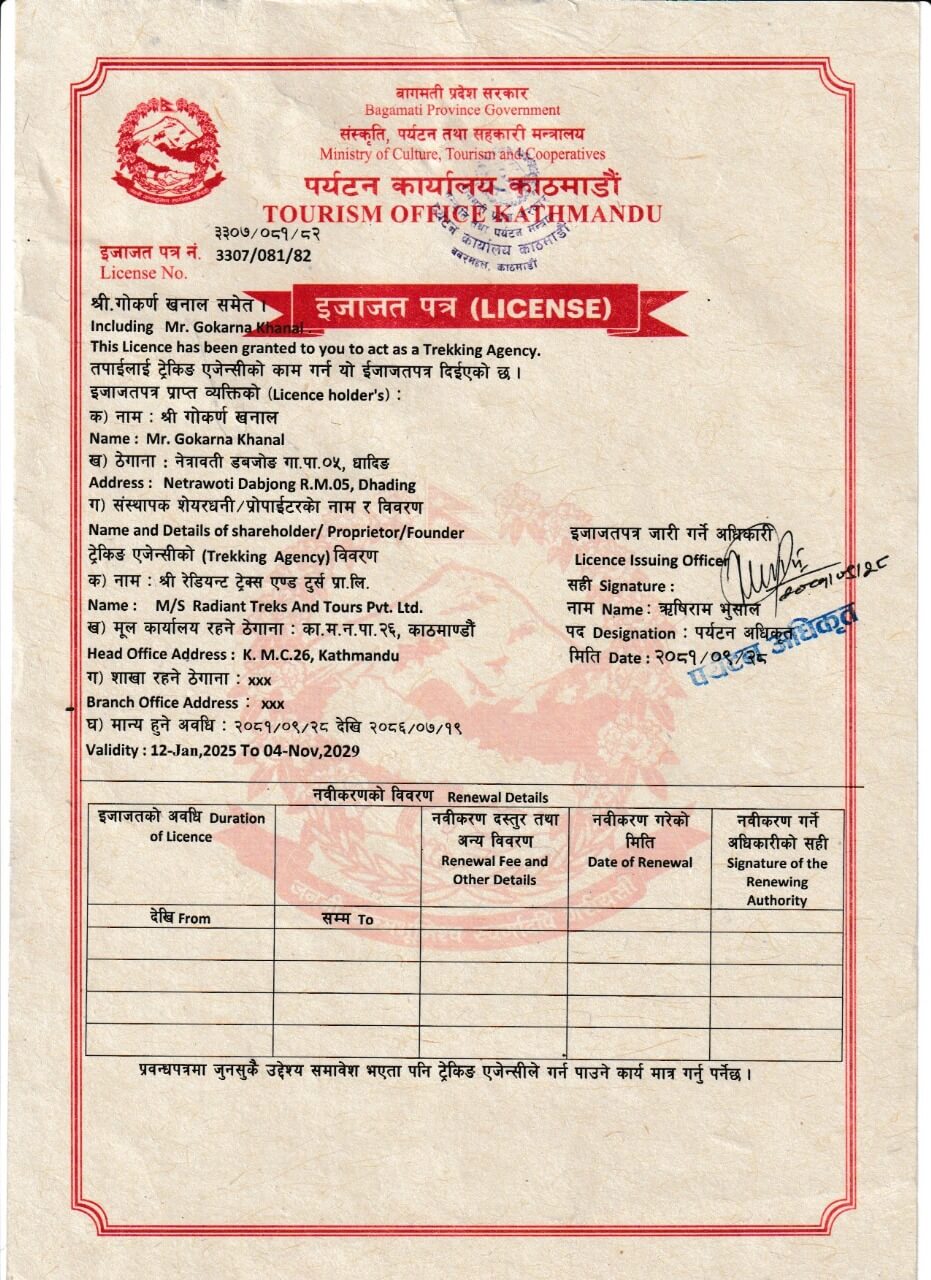 बागमती प्रदेश सरकार
Bagamati Province Government
संस्कृति, पर्यटन तथा सहकारी मन्त्रालय
Ministry of Culture, Tourism and Cooperatives
पर्यटन कार्यालय काठमाडौं
TOURISM OFFICE KATHMANDU
पर्यटन कार्यालय काठमाडौं
बबरमहल, काठमाडौं
३३०७/०८१/८२
इजाजत पत्र नं. 3307/081/82
License No.
इजाजत पत्र (LICENSE)
श्री.गोकर्ण खनाल समेत ।
Including Mr. Gokarna Khanal .
This Licence has been granted to you to act as a Trekking Agency.
तपाईलाई ट्रेकिङ एजेन्सीको काम गर्न यो ईजाजतपत्र दिईएको छ ।
इजाजतपत्र प्राप्त व्यक्तिको (Licence holder's) :
क) नाम : श्री गोकर्ण खनाल
Name : Mr. Gokarna Khanal
ख) ठेगाना : नेत्रावती डबजोङ गा.पा.०५, धादिङ
Address : Netrawoti Dabjong R.M.05, Dhading
ग) संस्थापक शेयरधनी/प्रोपाईटरको नाम र विवरण
Name and Details of shareholder/ Proprietor/Founder
ट्रेकिङ एजेन्सीको (Trekking Agency) विवरण
क) नाम : श्री रेडियन्ट ट्रेक्स एण्ड टुर्स प्रा.लि.
Name : M/S Radiant Treks And Tours Pvt. Ltd.
ख) मूल कार्यालय रहने ठेगाना : का.म.न.पा.२६, काठमाण्डौं
Head Office Address : K. M.C.26, Kathmandu
ग) शाखा रहने ठेगाना : xxx
Branch Office Address : xxx
घ) मान्य हुने अवधि : २०८१/०९/२८ देखि २०८६/०७/१९
Validity : 12-Jan,2025 To 04-Nov,2029
इजाजतपत्र जारी गर्ने अधिकारी
Licence Issuing Officer
सही Signature :
२०८१/०९/२८
नाम Name : ऋषिराम भुसाल
पद Designation : पर्यटन अधिकृत
मिति Date : २०८१/०९/२८
पर्यटन अधिकृत
नवीकरणको विवरण Renewal Details
इजाजतको अवधि Duration
of Licence
नवीकरण दस्तुर तथा
अन्य विवरण
Renewal Fee and
Other Details
नवीकरण गरेको
मिति
Date of Renewal
नवीकरण गर्ने
अधिकारीको सही
Signature of the
Renewing
Authority
देखि From
सम्म To
प्रवन्धपत्रमा जुनसुकै उद्देश्य समावेश भएता पनि ट्रेकिङ एजेन्सीले गर्न पाउने कार्य मात्र गर्नु पर्नेछ ।